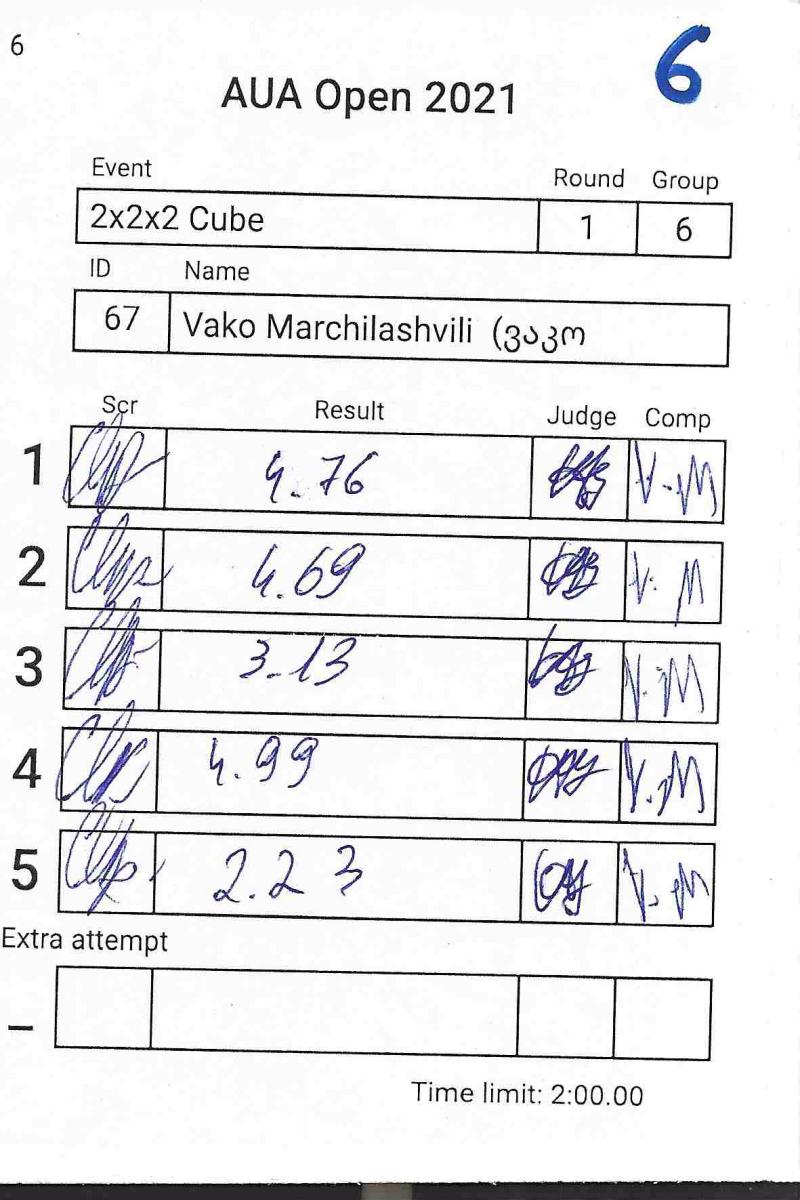 6
6
AUA Open 2021
Event Round Group
2x2x2 Cube 1 6
ID Name
67 Vako Marchilashvili (ვაკო
Scr Result Judge Comp
1 4.76 V.M
2 4.69 V. M
3 3.13 V.M
4 4.99 V.M
5 2.23 V.M
Extra attempt
–
Time limit: 2:00.00